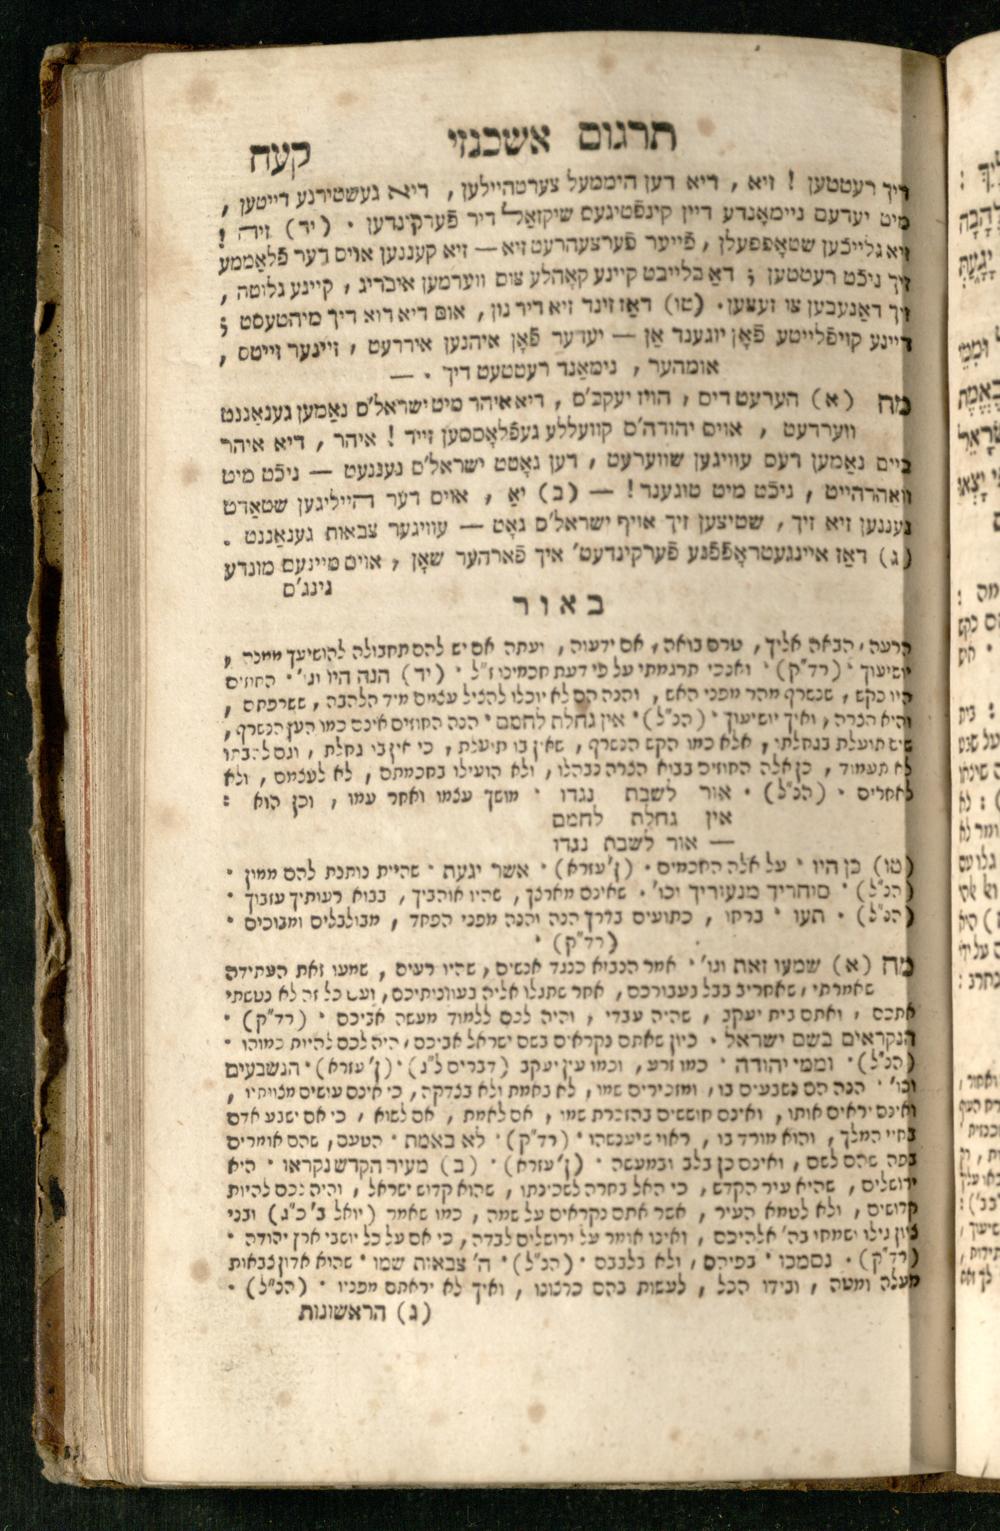 תרגום אשכנזי
קעח
דיך רעטטען ! זיא , דיא דען היממעל צערטהיילען , דיא געשטירנע דייטען ,
מיט יעדעם ניימאָנדע דיין קינפֿטיגעס שיקזאַל דיר פֿערקינדען . (יד) זיה !
זיא גלייכֿען שטאָפפעלן , פֿייער פֿערצעהרעט זיא — זיא קעננען אויס דער פֿלאַממע
זיך ניכֿט רעטטען ; דאַ בלייבט קיינע קאָהלע צום ווערמען איבריג , קיינע גלוטה ,
זיך דאַנעבען צו זעצען . (טו) דאַז זינד זיא דיר נון , אום דיא דוא דיך מיהטעסט ;
דיינע קויפֿלייטע פֿאָן יוגענד אַן — יעדער פֿאָן איהנען איררעט , זיינער זייטס ,
אומהער , נימאַנד רעטטעט דיך . —
מח (א) הערעט דיס , הויז יעקב'ס , דיא איהר מיט ישראל'ס נאַמען גענאַננט
ווערדעט , אויס יהודה'ס קוועללע געפֿלאָססען זייד ! איהר , דיא איהר
ביים נאַמען דעס עוויגען שווערעט , דען גאָטט ישראל'ס נעננעט — ניכֿט מיט
וואַהרהייט , ניכֿט מיט טוגענד ! — (ב) יאַ , אויס דער הייליגען שטאַדט
נעננען זיא זיך , שטיצען זיך אויף ישראל'ס גאָט — עוויגער צבאות גענאַננט .
(ג) דאַז איינגעטראָפֿפֿנע פֿערקינדעט' איך פֿאָרהער שאָן , אויס מיינעם מונדע
גינג'ס
באור
הרעה , הבאה אליך , טרם בואה , אם ידעוה , ועתה אם יש להם תחבולה להושיעך ממנה ,
יושיעוך . (רד"ק) . ואנכי תרגמתי על פי דעת חכמינו ז"ל . (יד) הנה היו וגו' . החוזים
היו כקש , שנשרף מהר מפני האש , והנה הם לא יוכלו להציל עצמם מיד הלהבה , ששרפתם ,
והיא הצרה , ואיך יושיעוך . (הנ"ל) . אין גחלת לחמם . הנה החוזים אינם כמו העץ הנשרף ,
שיש תועלת בגחלתו , אלא כמו הקש הנשרף , שאין בו תועלת , כי אין בו גחלת , וגם להבתו
לא תעמוד , כן אלה החוזים בבוא הצרה נבהלו , ולא הועילו בחכמתם , לא לעצמם , ולא
לאחרים . (הנ"ל) . אור לשבת נגדו . מושך עצמו ואחר עמו , וכן הוא :
אין גחלת לחמם
— אור לשבת נגדו
(טו) כן היו . על אלה החכמים . (ן' עזרא) . אשר יגעת . שהיית נותנת להם ממון .
(הנ"ל) . סוחריך מנעוריך וכו' . שאינם מארצך , שהיו אוהביך , בבוא רעותיך עזבוך .
(הנ"ל) . תעו . ברחו , כתועים בדרך הנה והנה מפני הפחד , מבולבלים ומבוכים .
(רד"ק) .
מח (א) שמעו זאת וגו' . אמר הנביא כנגד אנשים , שהיו רעים , שמעו זאת העתידה
שאמרתי , שאחריב בבל בעבורכם , אחר שתגלו אליה בעוונותיכם , ועם כל זה לא נטשתי
אתכם , ואתם בית יעקב , שהיה עבדי , והיה לכם ללמוד מעשה אביכם . (רד"ק) .
הנקראים בשם ישראל . כיון שאתם נקראים בשם ישראל אביכם , היה לכם להיות כמוהו .
(הנ"ל) . וממי יהודה . כמו זרע , וכמו עין יעקב (דברים ל"ג) . (ן' עזרא) . הנשבעים
וכו' . הנה הם נשבעים בו , ומזכירים שמו , לא באמת ולא בצדקה , כי אינם עושים מצוותיו ,
ואינם יראים אותו , ואינם חוששים בהזכרת שמו , אם לאמת , אם לשוא , כי אם ישבע אדם
בחיי המלך , והוא מורד בו , ראוי שיענשהו . (רד"ק) . לא באמת . הטעם , שהם אומרים
בפה שהם לשם , ואינם כן בלב ובמעשה . (ן' עזרא) . (ב) מעיר הקדש נקראו . היא
ירושלים , שהיא עיר הקדש , כי האל בחרה לשכינתו , שהוא קדוש ישראל , והיה לכם להיות
קדושים , ולא לטמא העיר , אשר אתם נקראים על שמה , כמו שאמר (יואל ב' כ"ג) ובני
ציון גילו ושמחו בה' אלהיכם , ואינו אומר על ירושלים לבדה , כי אם על כל יושבי ארץ יהודה .
(רד"ק) . נסמכו . בפיהם , ולא בלבבם . (הנ"ל) . ה' צבאות שמו . שהוא אדון צבאות
מעלה ומטה , ובידו הכל , לעשות בהם כרצונו , ואיך לא יראתם מפניו . (הנ"ל) .
(ג) הראשונות